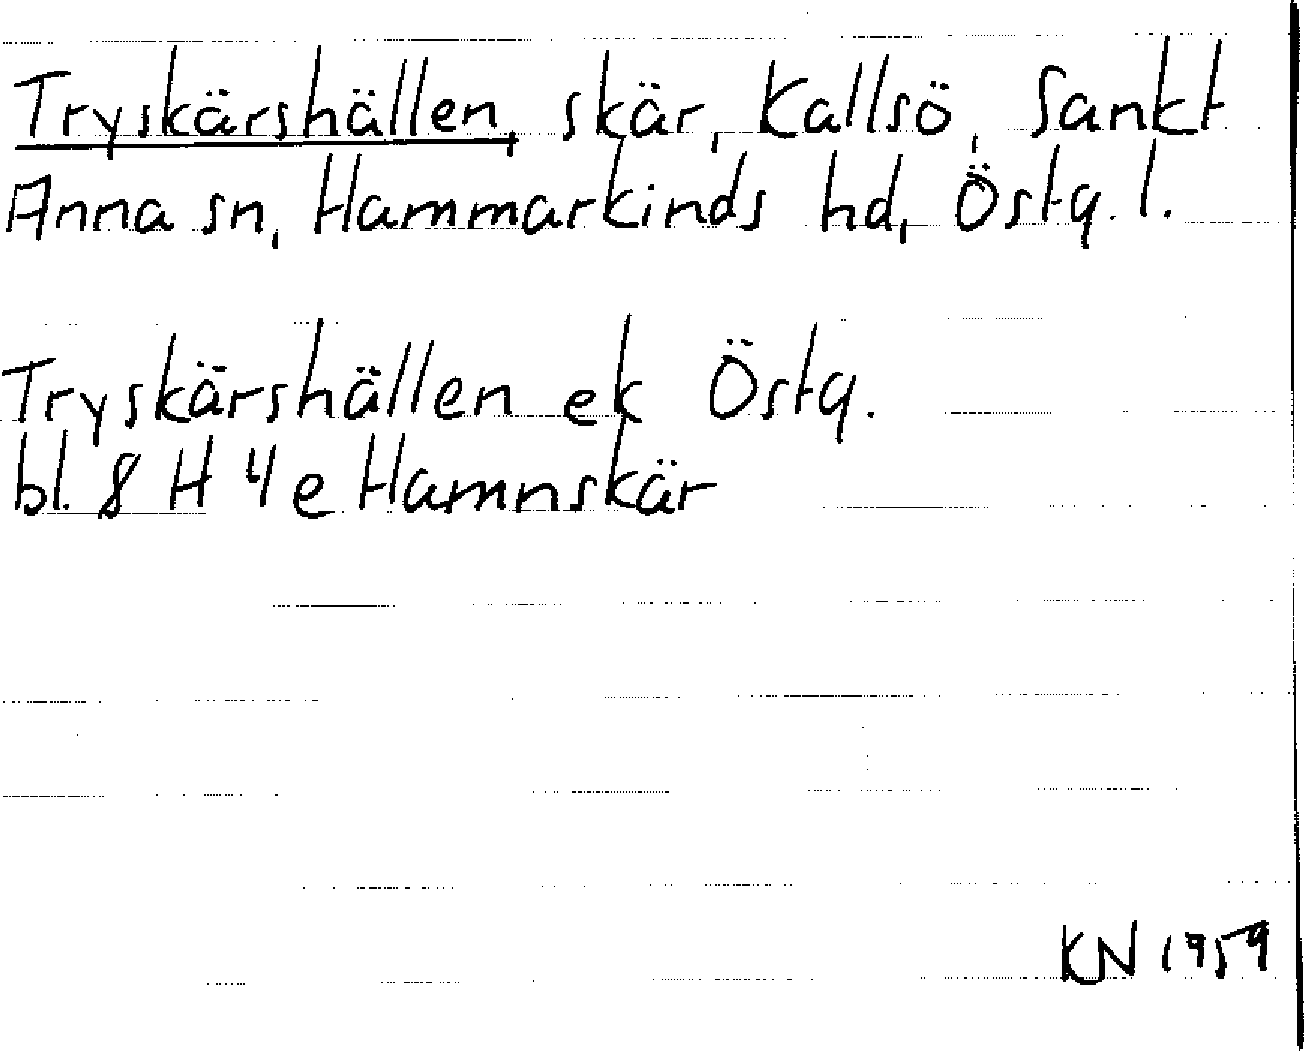 Tryskärshällen, skär, Kallsö, Sankt
Anna sn, Hammarkinds hd, Östg. l.
Tryskärshällen ek Östg.
bl. 8 H 4 e Hamnskär
KN 1959